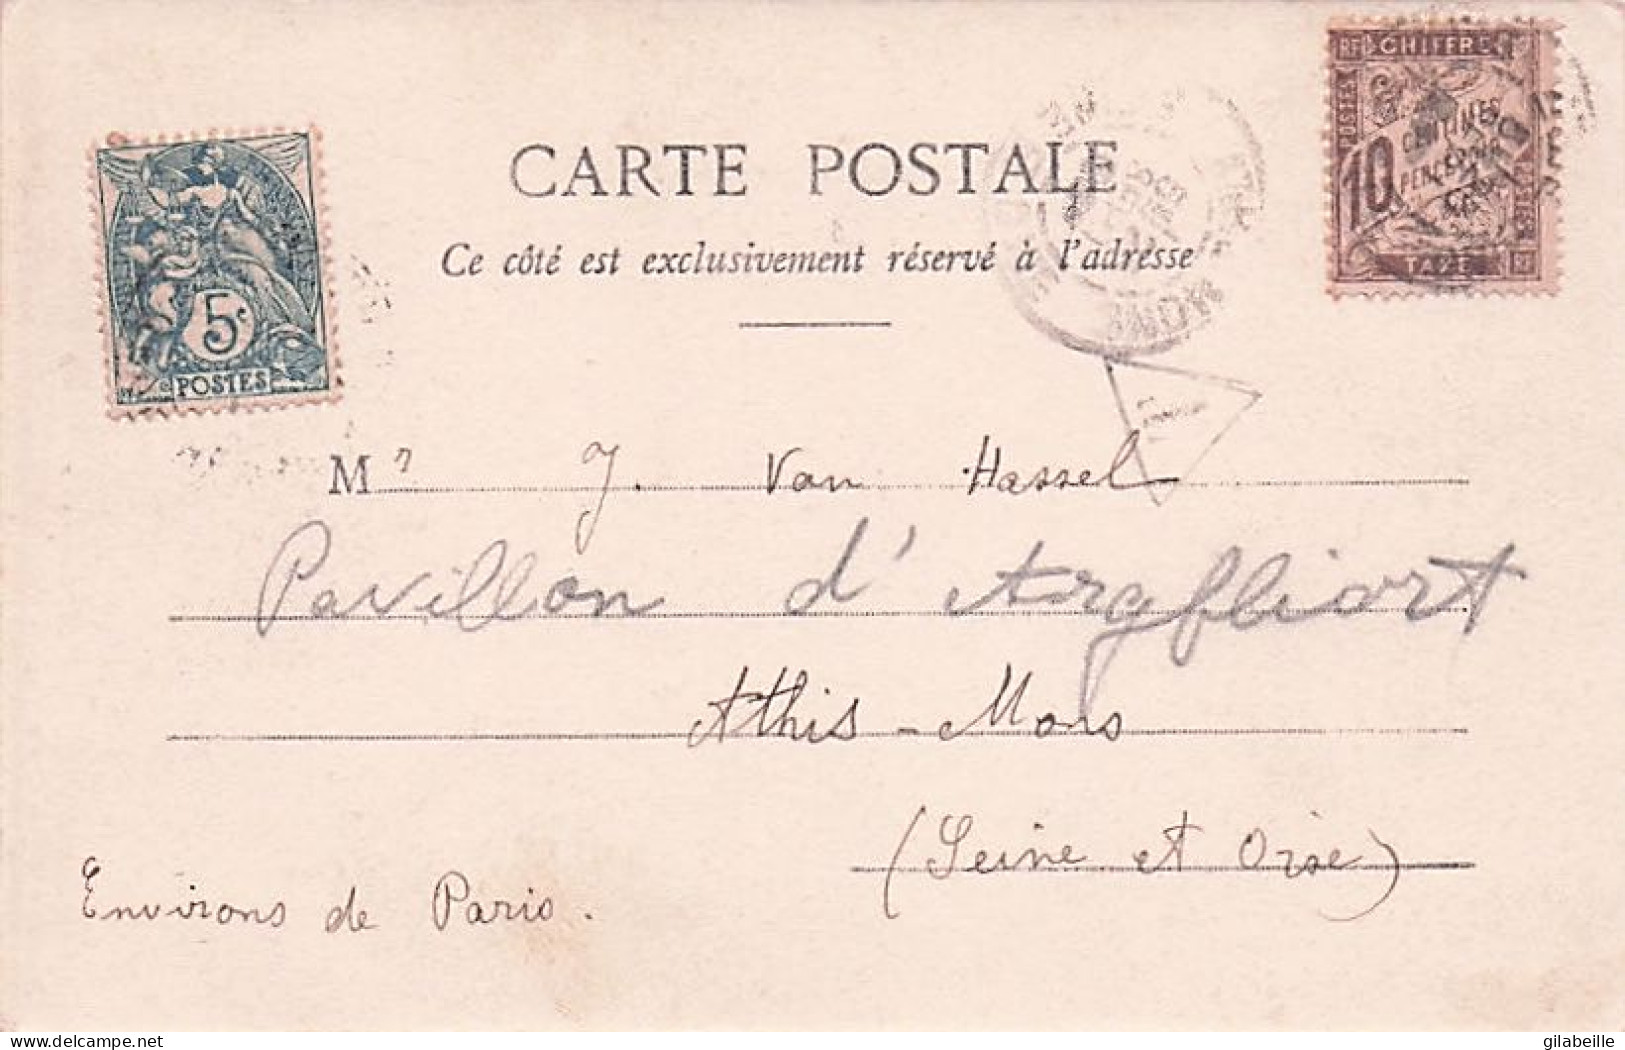 CARTE POSTALE
Ce côté est exclusivement réservé à l'adresse
5c
POSTES
RF CHIFFRE
10 CENTIMES
PERCEVOIR
TAXE RF
T
Mr J. Van Hassel
Pavillon d'
Athis-Mons
(Seine et Oise)
Environs de Paris.
delcampe.net
gilabeille